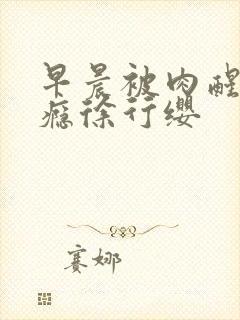 早晨被肉醒
瘾徐行缨
赛娜